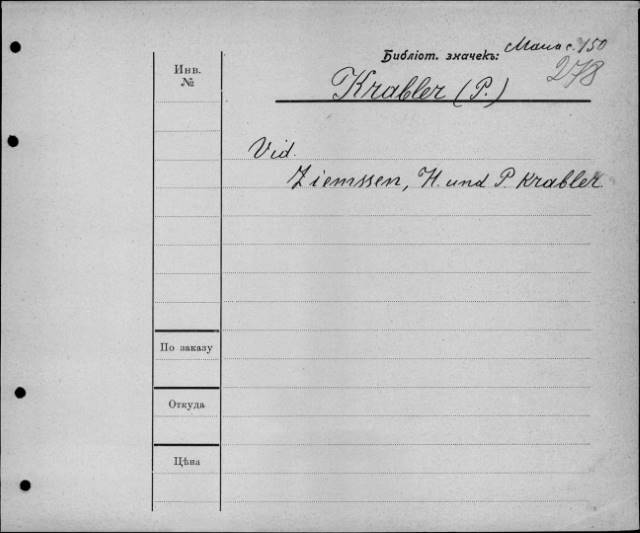 Библіот. значекъ:
278
Инв.
№
Krabler (P.)
Vid.
Ziemssen, H. und P. Krabler
По заказу
Откуда
Цѣна